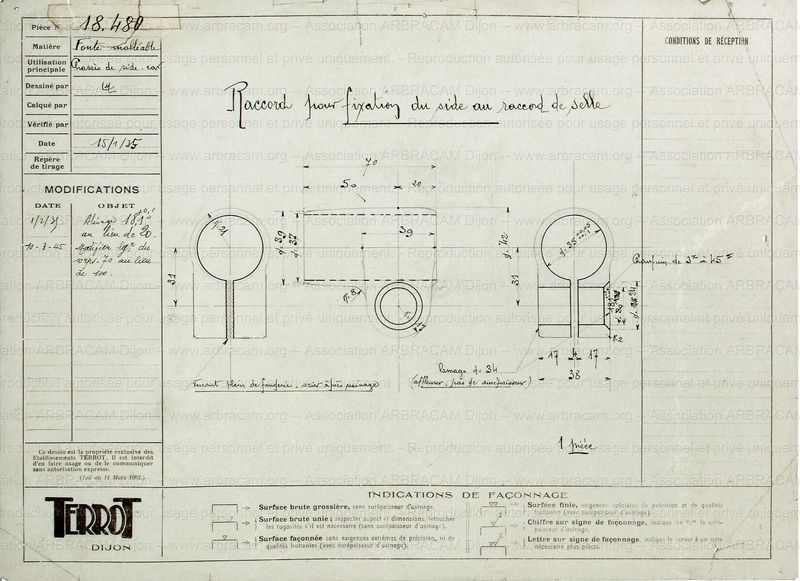 Pièce N° 18.480
Matière Fonte malléable
Utilisation principale Chassis de side-car
Dessiné par
Calqué par
Vérifié par
Date 15/1/35
Repère de tirage
MODIFICATIONS
DATE OBJET
Alésage
au lieu de 20.
10-3-45 Modifier
70 au lieu
de 100.
CONDITIONS DE RÉCEPTION
Raccord pour fixation du side au raccord de selle
70
50 20
39
31
31
17 4 17
38
Chanfrein de 3 à 45
Lamage ø 34
(affleurer, pas de surépaisseur)
Venant plein de fonderie, scier après usinage
1 pièce
Ce dessin est la propriété exclusive des
Etablissements TERROT. Il est interdit
d'en faire usage ou de le communiquer
sans autorisation expresse.
(Loi du 11 Mars 1902.)
TERROT
DIJON
INDICATIONS DE FAÇONNAGE
Surface brute grossière, sans surépaisseur d'usinage.
Surface brute unie ; respecter aspect et dimensions, retoucher
les rugosités s'il est nécessaire (sans surépaisseur d'usinage).
Surface façonnée sans exigences extrêmes de précision, ni de
qualités frottantes (avec surépaisseur d'usinage).
Surface finie, exigences spéciales de précision et de qualités
frottantes (avec surépaisseur d'usinage).
Chiffre sur signe de façonnage, indique en "/" la surépaisseur d'usinage.
Lettre sur signe de façonnage, indique le renvoi à une note
nécessaire plus précise.
www.arbracam.org -- Association ARBRACAM Dijon
Reproduction autorisée pour usage personnel et privé uniquement.